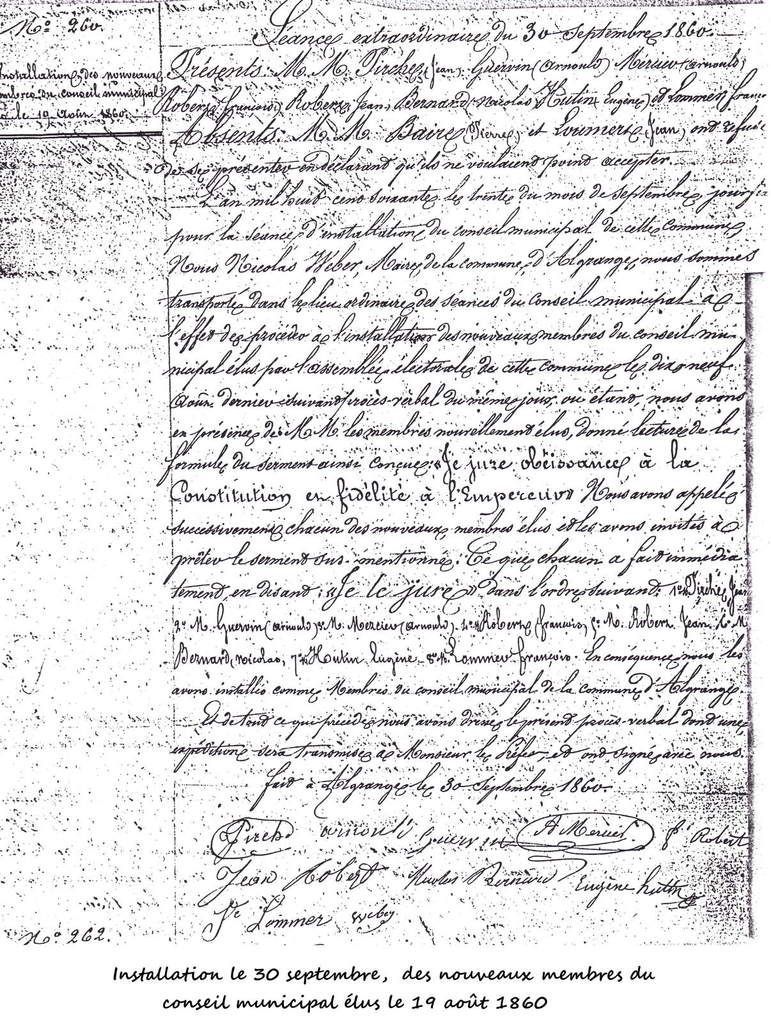 No. 260.
Installation des nouveaux
membres du conseil municipal
le 19 Août 1860.
Séance extraordinaire du 30 Septembre 1860.
Présents: M. M. Pirché (Jean) Guervin (Arnould) Mercier (Arnould)
Robert (François) Robert (Jean) Bernard (Nicolas) Hutin (Eugène) et Lommer, Franço
Absents: M. M. Baire (Pierre) et (Jean) ont refusé
de se présenter en déclarant qu'ils ne voulaient point accepter.
L'an mil huit cent soixante le trente du mois de Septembre jour
pour la séance d'installation du conseil municipal de cette commune
Nous Nicolas Weber, Maire de la commune d'Algrange, nous sommes
transporté dans le lieu ordinaire des séances du Conseil municipal à
l'effet de procéder à l'installation des nouveaux membres du conseil mu-
nicipal élus par l'assemblée électorale de cette commune le dix neuf
Août dernier suivant procès-verbal du même jour, où étant, nous avons
en présence de M. M. les membres nouvellement élus, donné lecture de la
formule du serment ainsi conçue: "Je jure obéissance à la
Constitution en fidélité à l'Empereur" Nous avons appelé
successivement chacun des nouveaux membres élus et les avons invités à
prêter le serment sus-mentionné. Ce que chacun a fait immédia
tement en disant: "Je le jure" dans l'ordre suivant: 1° M. Pirché Jean
2° M. Guervin (Arnould) 3° M. Mercier (Arnould). 4° M. Robert (François) 5° M. Robert Jean 6° M
Bernard (Nicolas, 7° M. Hutin Eugène - 8° M. Lommer François. En conséquence nous les
avons installés comme Membres du conseil municipal de la commune d'Algrange.
Et de tout ce qui précède nous avons dressé le présent procès-verbal dont une
expédition sera transmise à Monsieur le Préfet, et ont signé avec nous.
fait à Algrange le 30 Septembre 1860.
Pirché Arnould Guervin A Mercier F. Robert
Jean Robert Nicolas Bernard Eugène hutin
Lommer Weber
No. 262.
Installation le 30 septembre, des nouveaux membres du
conseil municipal élus le 19 août 1860